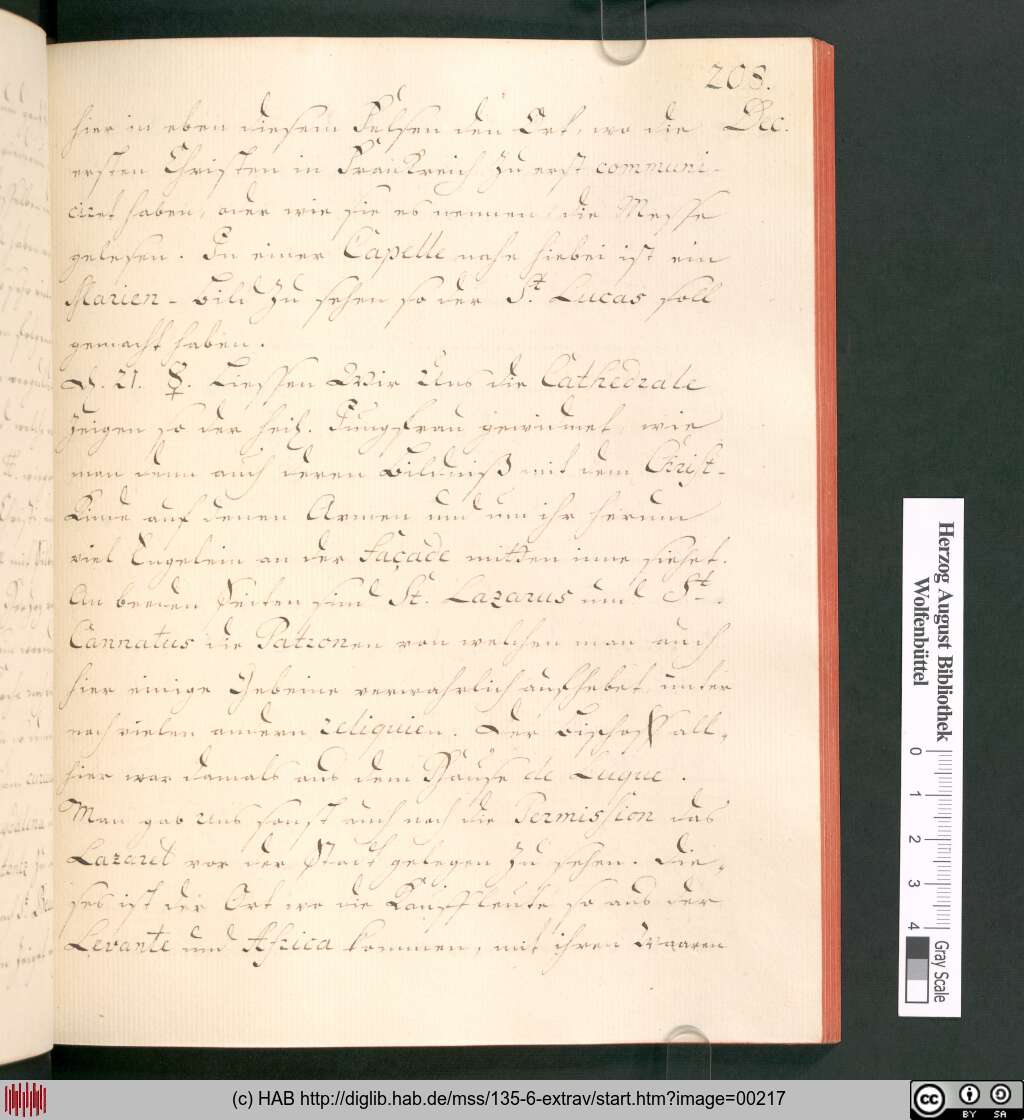 208.
Dec.
hier in eben diesem Felsen den Ort, wo die
ersten Christen in Franckreich zu erst communi-
ciret haben, oder wie sie es nennen, die Messe
gelesen. In einer Capelle nahe hiebei ist ein
Marien-Bild zu sehen so der St. Lucas soll
gemacht haben.
D. 21. ☿. Liessen Wir Uns die Cathedrale
zeigen so der heil. Jungfrau gewidmet, wie
man denn auch deren Bildniß mit dem Christ-
Kinde auf denen Armen und um ihr herum
viel Engelein an der Façade mitten inne siehet.
An beeden Seiten sind St. Lazarus und St.
Cannatus die Patronen von welchen man auch
hier einige Gebeine verwahrlich aufhebet, unter
noch vielen andern reliquien. Der Bischoff all-
hier war damals aus dem Hause de Luque.
Man gab uns sonst auch noch die Permission das
Lazaret vor der Stadt gelegen zu sehen. Die-
ses ist der Ort wo die Kaufleute so aus der
Levante und Africa kommen, mit ihren Waaren
Herzog August Bibliothek
Wolfenbüttel
0 1 2 3 4
Gray Scale
(c) HAB http://diglib.hab.de/mss/135-6-extrav/start.htm?image=00217
cc BY SA